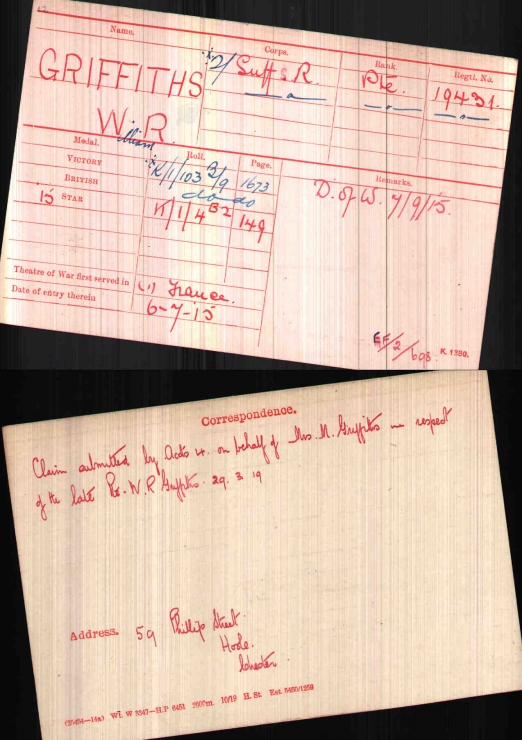 Name. Corps. Rank. Regtl. No.
GRIFFITHS 2/ Suff: R. Pte. 19431.
W. R.
William
Medal. Roll. Page. Remarks.
VICTORY K/1/103 B/9 1673 D. of W. 7/9/15.
BRITISH do do
15 STAR K/1/4 B2 149
Theatre of War first served in (1) France.
Date of entry therein 6-7-15
EF/2/698 K 1380.
Correspondence.
Claim submitted by Acts 4. on behalf of Mrs. M. Griffiths in respect
of the late Pte. W. R Griffiths. 29. 3 19
Address. 59 Phillip Street
Hoole.
Chester
W 3347—H.P 6451 10/19 H. St.